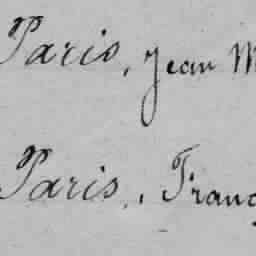 Paris, Jean M
Paris, Franç